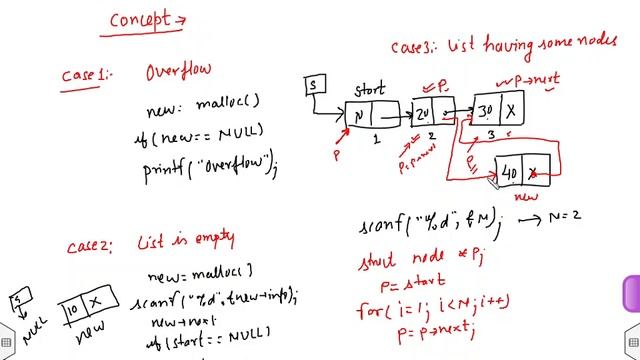 Concept →
Case1:- Overflow
new = malloc()
if(new == NULL)
printf("Overflow");
Case2: List is empty
new = malloc()
scanf("%d", &new→info);
new→next
if(start == NULL)
S
NULL
10 X
new
Case3:- List having some nodes
S
start
P
P→next
N
20
30 X
1
2
3
P
P=P→next
P
40 X
new
scanf("%d", &N); → N=2
struct node *P;
P = start
for(i=1; i<N; i++)
P = P→next;